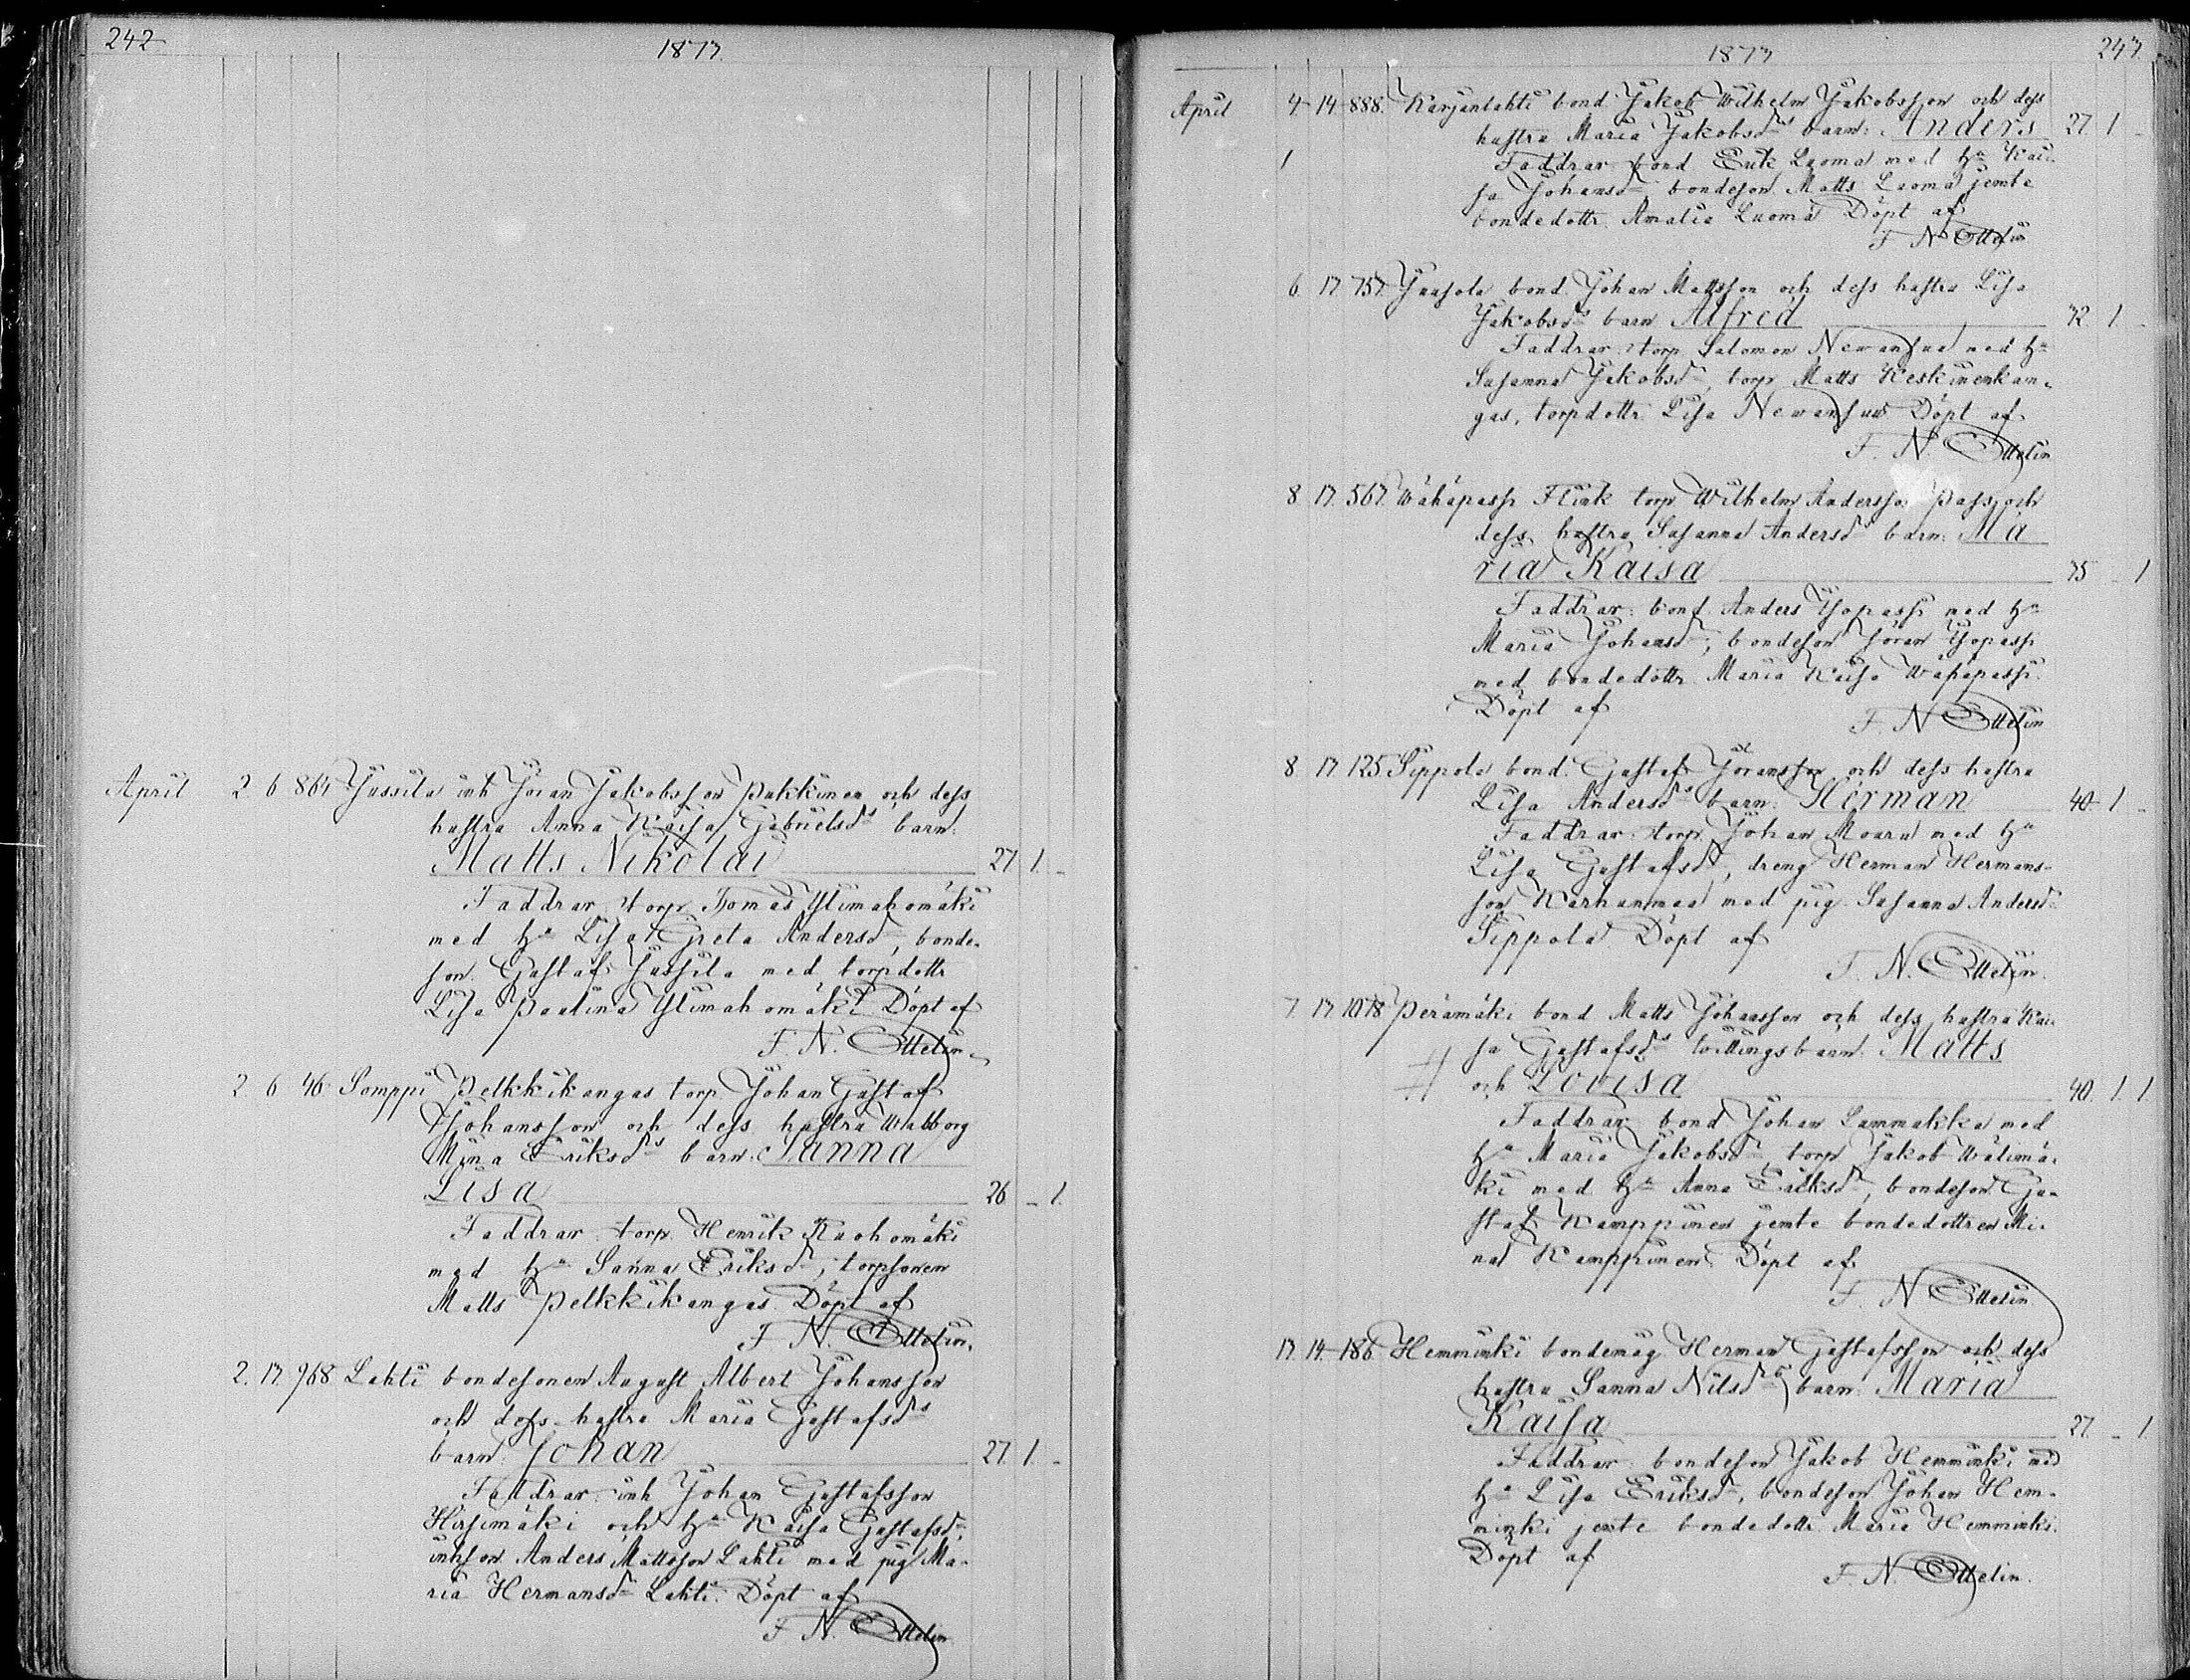 242
1873.
April 2. 6 864 Jussila inh Jöran Jakobsson Pukkinen och dess
hustru Anna Kaisa Gabrielsdrs barn:
Matts Nikolai 27 1. -
Faddrar: torp. Tomas Ylimahomäki
med hu Lisa Greta Andersdr, bonde-
son Gustaf Jussila med torpdottr
Lisa Paulina Ylimahomäki. Döpt af
F. N. Ottelin.
2. 6 46. Somppi Pelkkikangas torp Johan Gustaf
Johansson och dess hustru Walborg
Mina Eriksdrs barn: Sanna
Lisa 26 - 1.
Faddrar: torp. Henrik Ruohomäki
med hu Sanna Eriksdr, torpsonen
Matts Pelkkikangas. Döpt af
F. N. Ottelin.
2. 13. 968 Lahti bondesonen August Albert Johansson
och dess hustru Maria Gustafsdrs
barn: Johan 27. 1. -
Faddrar: inh Johan Gustafsson
Hirsimäki och hu Kaisa Gustafsdr,
inhson Anders Mattsson Lahti med pig. Ma-
ria Hermansdr Lahti. Döpt af
F. N. Ottelin
1873
243.
April 4. 14 888. Karjanlahti bond. Jakob Wilhelm Jakobsson och dess
hustru Maria Jakobsdrs barn: Anders 27. 1. -
1 Faddrar: bond Erik Luoma med hu Kai-
sa Johansdr, bondeson Matts Luoma jemte
bondedottr. Amalia Luoma Döpt af
F N Ottelin
6. 13. 757. Juasola bond. Johan Mattsson och dess hustru Lisa
Jakobsdrs barn Alfred 32. 1. -
Faddrar: torp Salomon Newansuu med hu
Susanna Jakobsdr, torp Matts Keskinenkan-
gas, torpdottr Lisa Newansuu Döpt af
F. N. Ottelin
8. 13. 567. Wähäpassi Flink torp Wilhelm Andersson Pass och
dess hustru Susanna Andersdrs barn: Ma
ria Kaisa 35 - 1
Faddrar: bond. Anders Yopassi med hu
Maria Johansdr, bondeson Jöran Yopassi
med bondedottr. Maria Kaisa Wähäpassi.
Döpt af F. N Ottelin
8 13 125. Sippola bond. Gustaf Jöransson och dess hustru
Lisa Andersdrs barn: Herman 40. 1. -
Faddrar: torp. Johan Moara med hu
Lisa Gustafsdr, dreng Herman Hermans-
son Karhunmaa med pig. Susanna Andersdr
Sippola Döpt af
F. N. Ottelin.
7. 13. 1078 Perämäki bond Matts Johansson och dess hustru Kai-
sa Gustafsdrs twillingsbarn: Matts
och Lovisa 40. 1. 1
Faddrar: bond Johan Lammakka med
hu Maria Jakobsdr, torp Jakob Wälimä-
ki med hu Anna Eriksdr, bondeson Gu-
staf Kamppinen jemte bondedottren Mi-
na Kamppinen Döpt af
F. N Ottelin
13. 14. 186. Hemminki bondemåg Herman Gustafsson och dess
hustru Sanna Nilsdrs barn: Maria
Kaisa 27. - 1
Faddrar: bondeson Jakob Hemminki med
hu Lisa Eriksdr, bondeson Johan Hem-
minki jemte bondedottr Maria Hemminki.
Döpt af F. N. Ottelin.